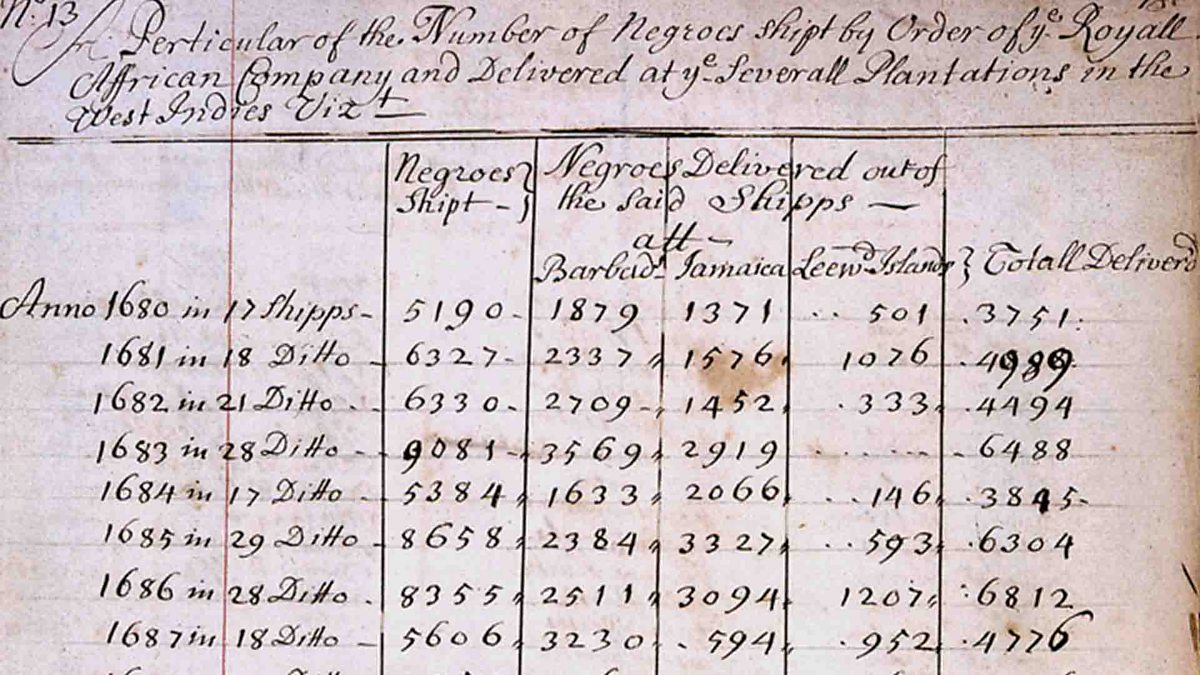 No. 13
A Perticular of the Number of Negroes Shipt by Order of ye. Royall
Affrican Company and Delivered at ye. Severall Plantations in the
West Indies Vizt
Negroes Shipt - Negroes Delivered out of
the said Shipps —
att -
Barbads. Jamaica Leewd. Islands Totall Deliverd
Anno 1680 in 17 Shipps - 5190 - 1879 1371 .. 501 . 3751.
1681 in 18 Ditto - 6327 - 2337 1576 1076 . 4989
1682 in 21 Ditto - 6330 - 2709 - 1452 . 333 . 4494
1683 in 28 Ditto - 9081 - 3569 2919 ...... 6488
1684 in 17 Ditto - 5384 1633 2066 .. 146 . 3845 -
1685 in 29 Ditto - 8658 2384 3327 .. 593 . 6304
1686 in 28 Ditto - 8355 2511 3094 1207 . 6812
1687 in 18 Ditto - 5606 3230 . 594 . 952 . 4776